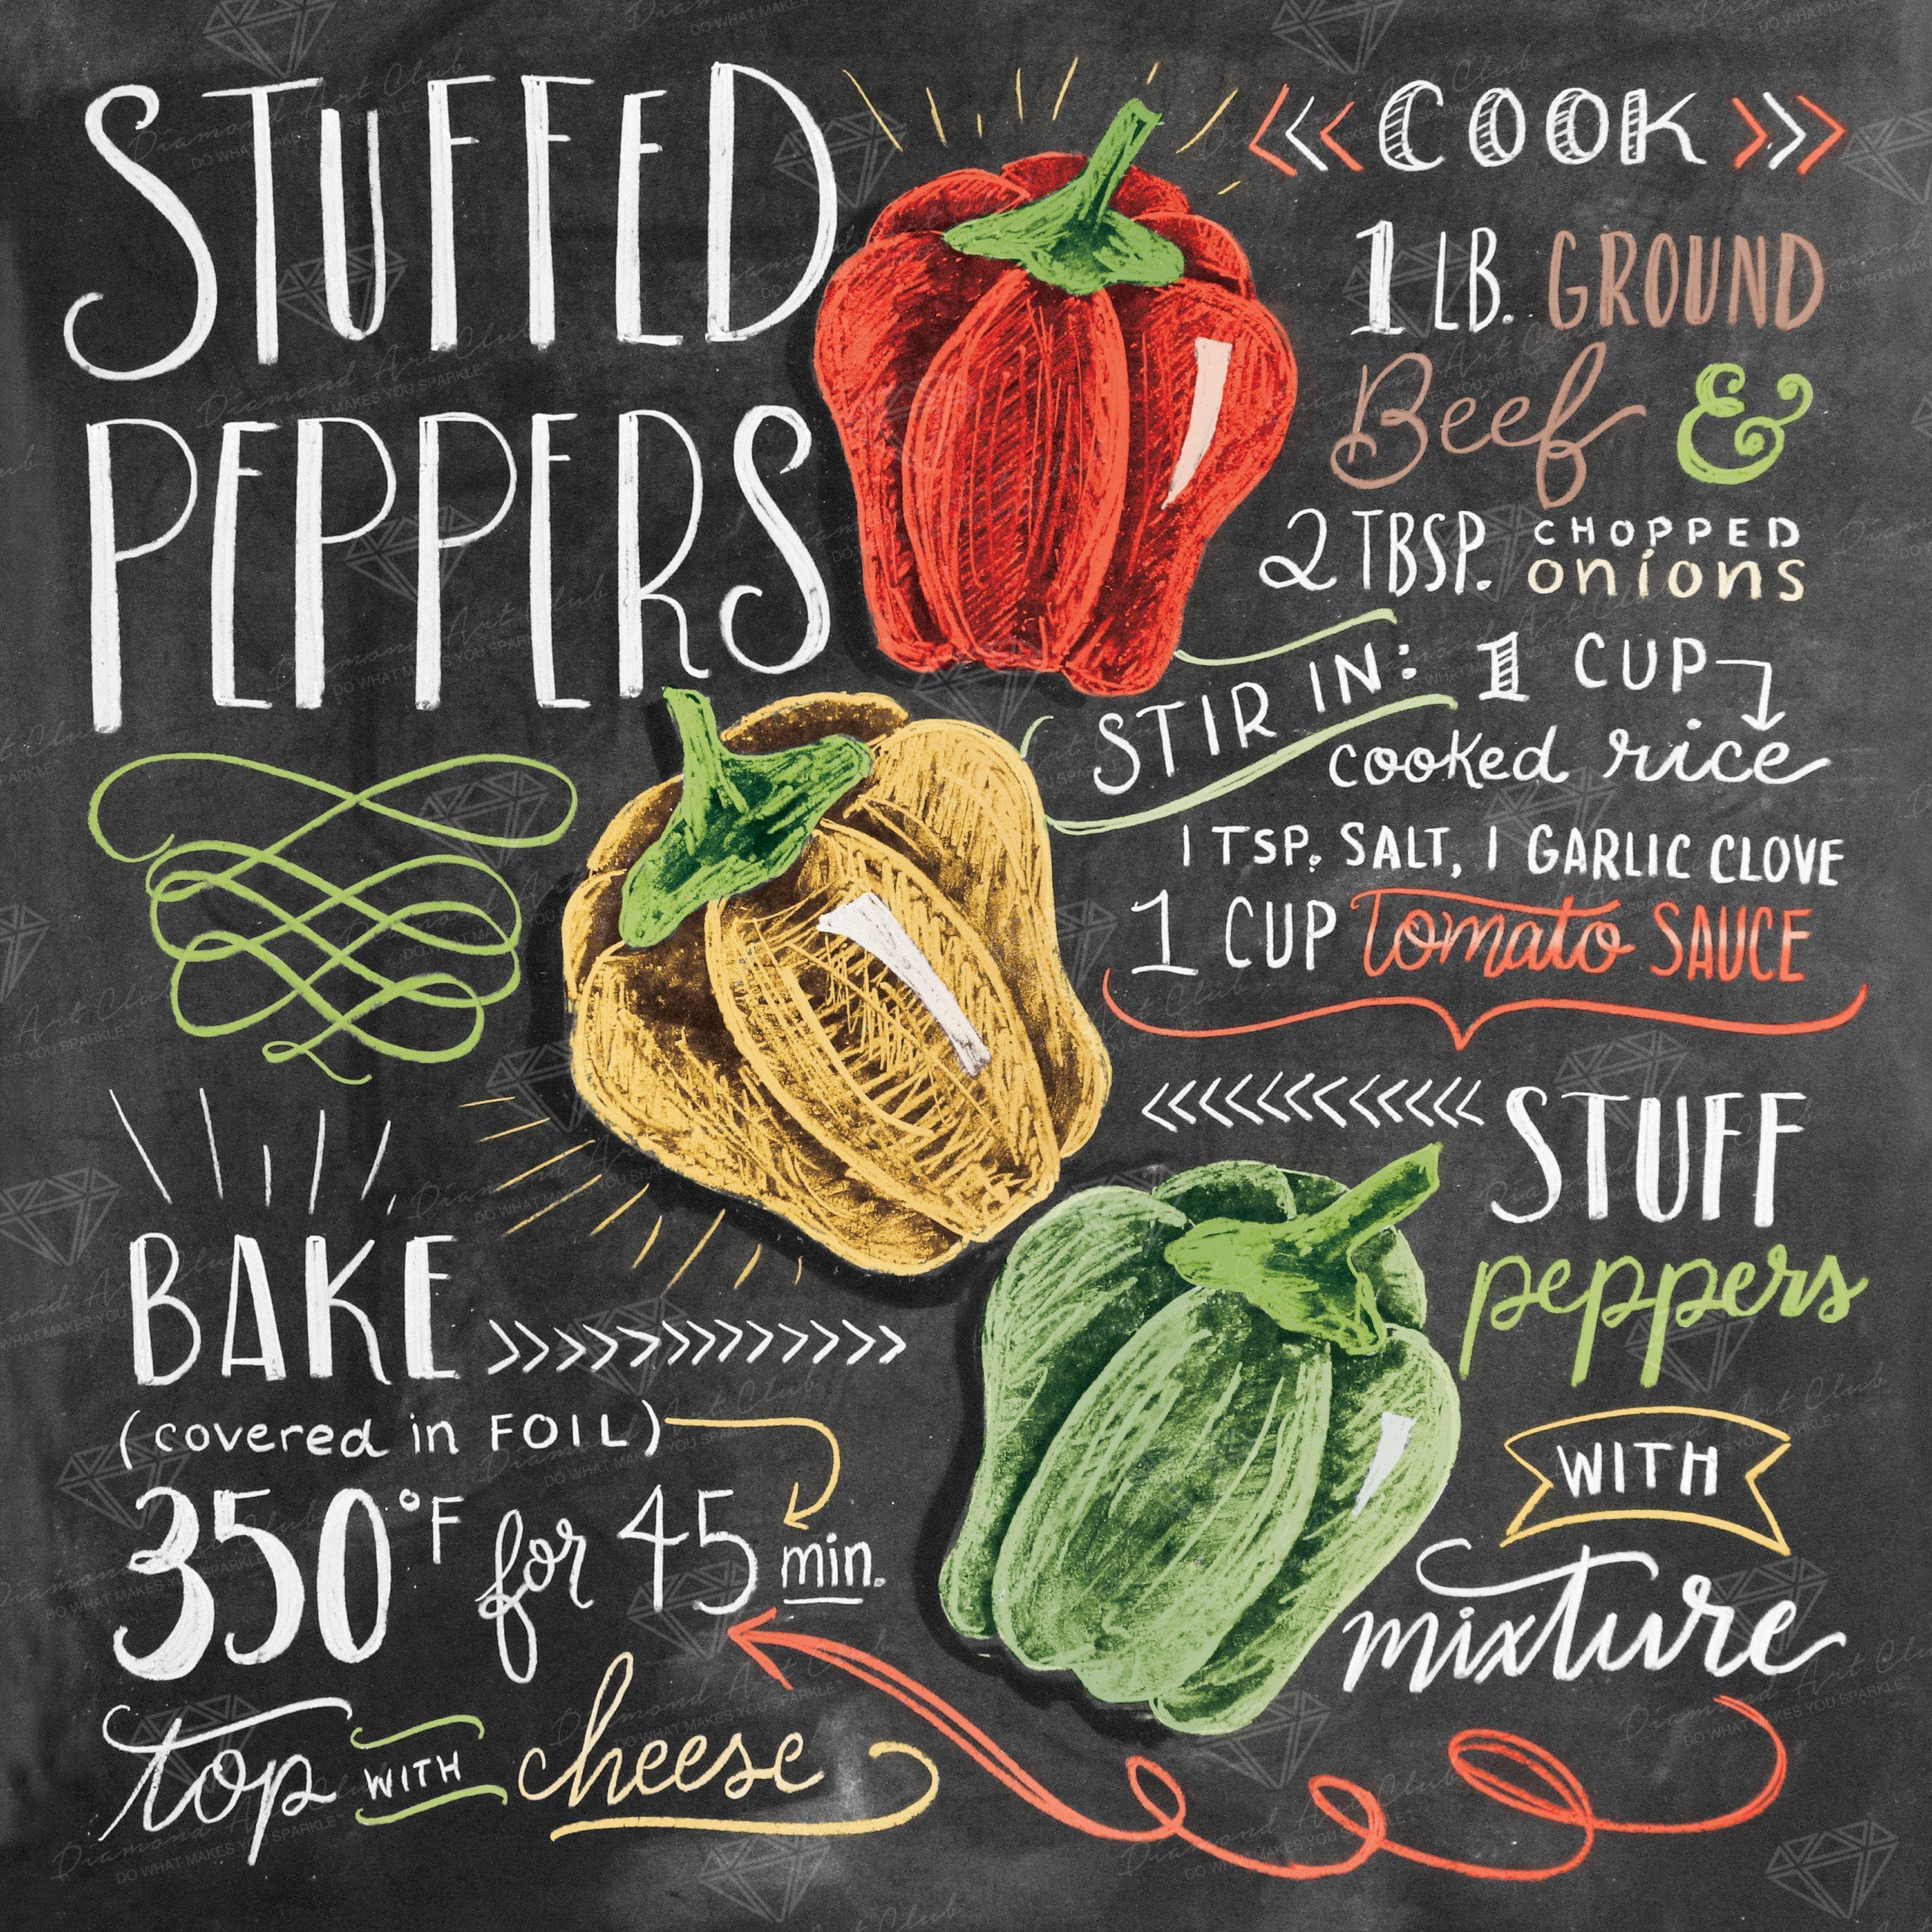 STUFFED
PEPPERS
COOK
1 LB. GROUND
Beef &
2 TBSP. CHOPPED
onions
STIR IN: 1 CUP
cooked rice
1 TSP. SALT, 1 GARLIC CLOVE
1 CUP tomato SAUCE
STUFF
peppers
WITH
mixture
BAKE
(covered in FOIL)
350°F for 45 min.
top WITH cheese
Diamond Art Club
DO WHAT MAKES YOU SPARKLE